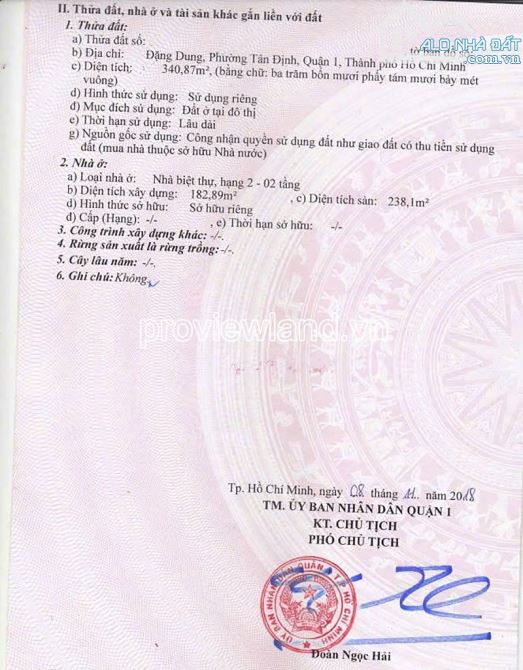 II. Thửa đất, nhà ở và tài sản khác gắn liền với đất
1. Thửa đất:
a) Thửa đất số:
ALO NHÀ ĐẤT
.com.vn
b) Địa chỉ: Đặng Dung, Phường Tân Định, Quận 1, Thành phố Hồ Chí Minh
c) Diện tích: 340,87m², (bằng chữ: ba trăm bốn mươi phẩy tám mươi bảy mét
vuông)
d) Hình thức sử dụng: Sử dụng riêng
đ) Mục đích sử dụng: Đất ở tại đô thị
e) Thời hạn sử dụng: Lâu dài
g) Nguồn gốc sử dụng: Công nhận quyền sử dụng đất như giao đất có thu tiền sử dụng
đất (mua nhà thuộc sở hữu Nhà nước)
2. Nhà ở:
a) Loại nhà ở: Nhà biệt thự, hạng 2 - 02 tầng
b) Diện tích xây dựng: 182,89m² , c) Diện tích sàn: 238,1m²
d) Hình thức sở hữu: Sở hữu riêng
đ) Cấp (Hạng): -/- , e) Thời hạn sở hữu: -/-
3. Công trình xây dựng khác: -/-.
4. Rừng sản xuất là rừng trồng: -/-.
5. Cây lâu năm: -/-.
6. Ghi chú: Không
proviewland.vn
Tp. Hồ Chí Minh, ngày 08 tháng 11.. năm 2018
TM. ỦY BAN NHÂN DÂN QUẬN 1
KT. CHỦ TỊCH
PHÓ CHỦ TỊCH
ỦY BAN NHÂN DÂN QUẬN 1 T.P HỒ CHÍ MINH
Đoàn Ngọc Hải